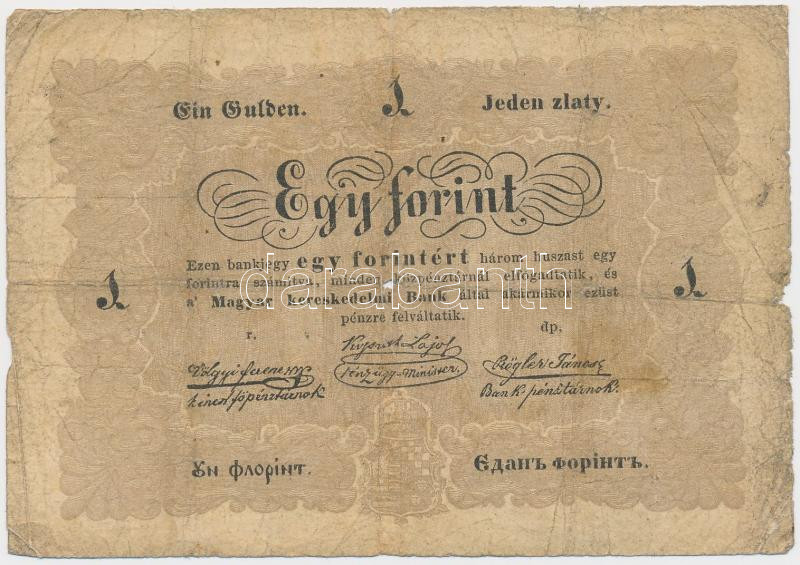 Ein Gulden.
1
Jeden zlaty.
Egy forint
Ezen bankjegy egy forintért három huszast egy
forintra számítva, minden közpénztárnál elfogadtatik, és
a' Magyar kereskedelmi Bank által akármikor ezüst
pénzre felváltatik.
1
1
r.
dp,
Kossuth Lajos
pénzügy-Minister.
Völgyi Ferencz
kincs. főpénztárnok
Rögler János
Bank pénztárnok.
Ꙋн флорінт.
Єданъ форінтъ.
darabanth